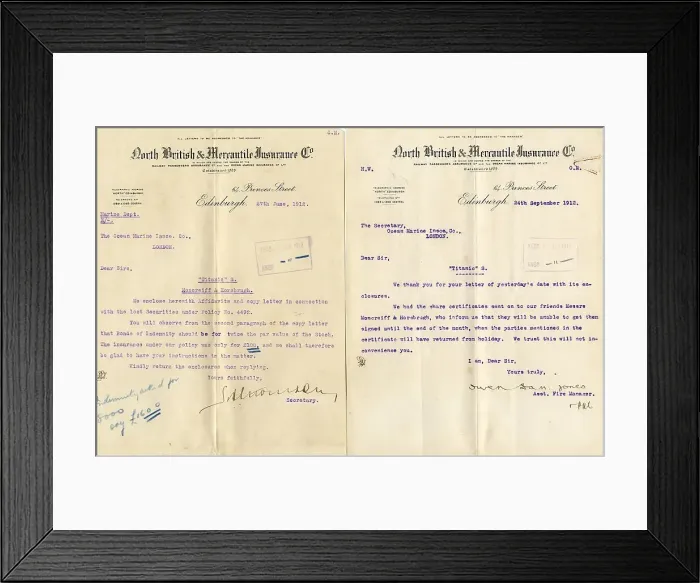 ALL LETTERS TO BE ADDRESSED TO THE MANAGER
North British & Mercantile Insurance Co.
ESTABLISHED 1809
64 Princes Street,
Edinburgh, 27th June, 1912.
Marine Dept.
The Ocean Marine Insce. Co.,
LONDON.
Dear Sirs,
"Titanic" S.
Moncrieff & Horsbrugh.
We enclose herewith Affidavits and copy letter in connection
with the lost Securities under Policy No.
You will observe from the second paragraph of the copy letter
that Bonds of Indemnity should be for twice the par value of the Stock.
The insurance under our policy was only for and we shall therefore
be glad to have your instructions in the matter.
Kindly return the enclosures when replying.
Yours faithfully,
Secretary.
Indemnity asked for
say £1600
ALL LETTERS TO BE ADDRESSED TO THE MANAGER
North British & Mercantile Insurance Co.
ESTABLISHED 1809
H.W.
64 Princes Street,
Edinburgh, 24th September 1912.
The Secretary,
Ocean Marine Insce. Co.,
LONDON.
Dear Sir,
"Titanic" S.
We thank you for your letter of yesterday's date with its en-
closures.
We had the share certificates sent on to our friends Messrs
Moncrieff & Horsbrugh, who inform us that they will be unable to get them
signed until the end of the month, when the parties mentioned in the
certificate will have returned from holiday. We trust this will not in-
convenience you.
I am, Dear Sir,
Yours truly,
Owen Dan. Jones
Asst. Fire Manager.